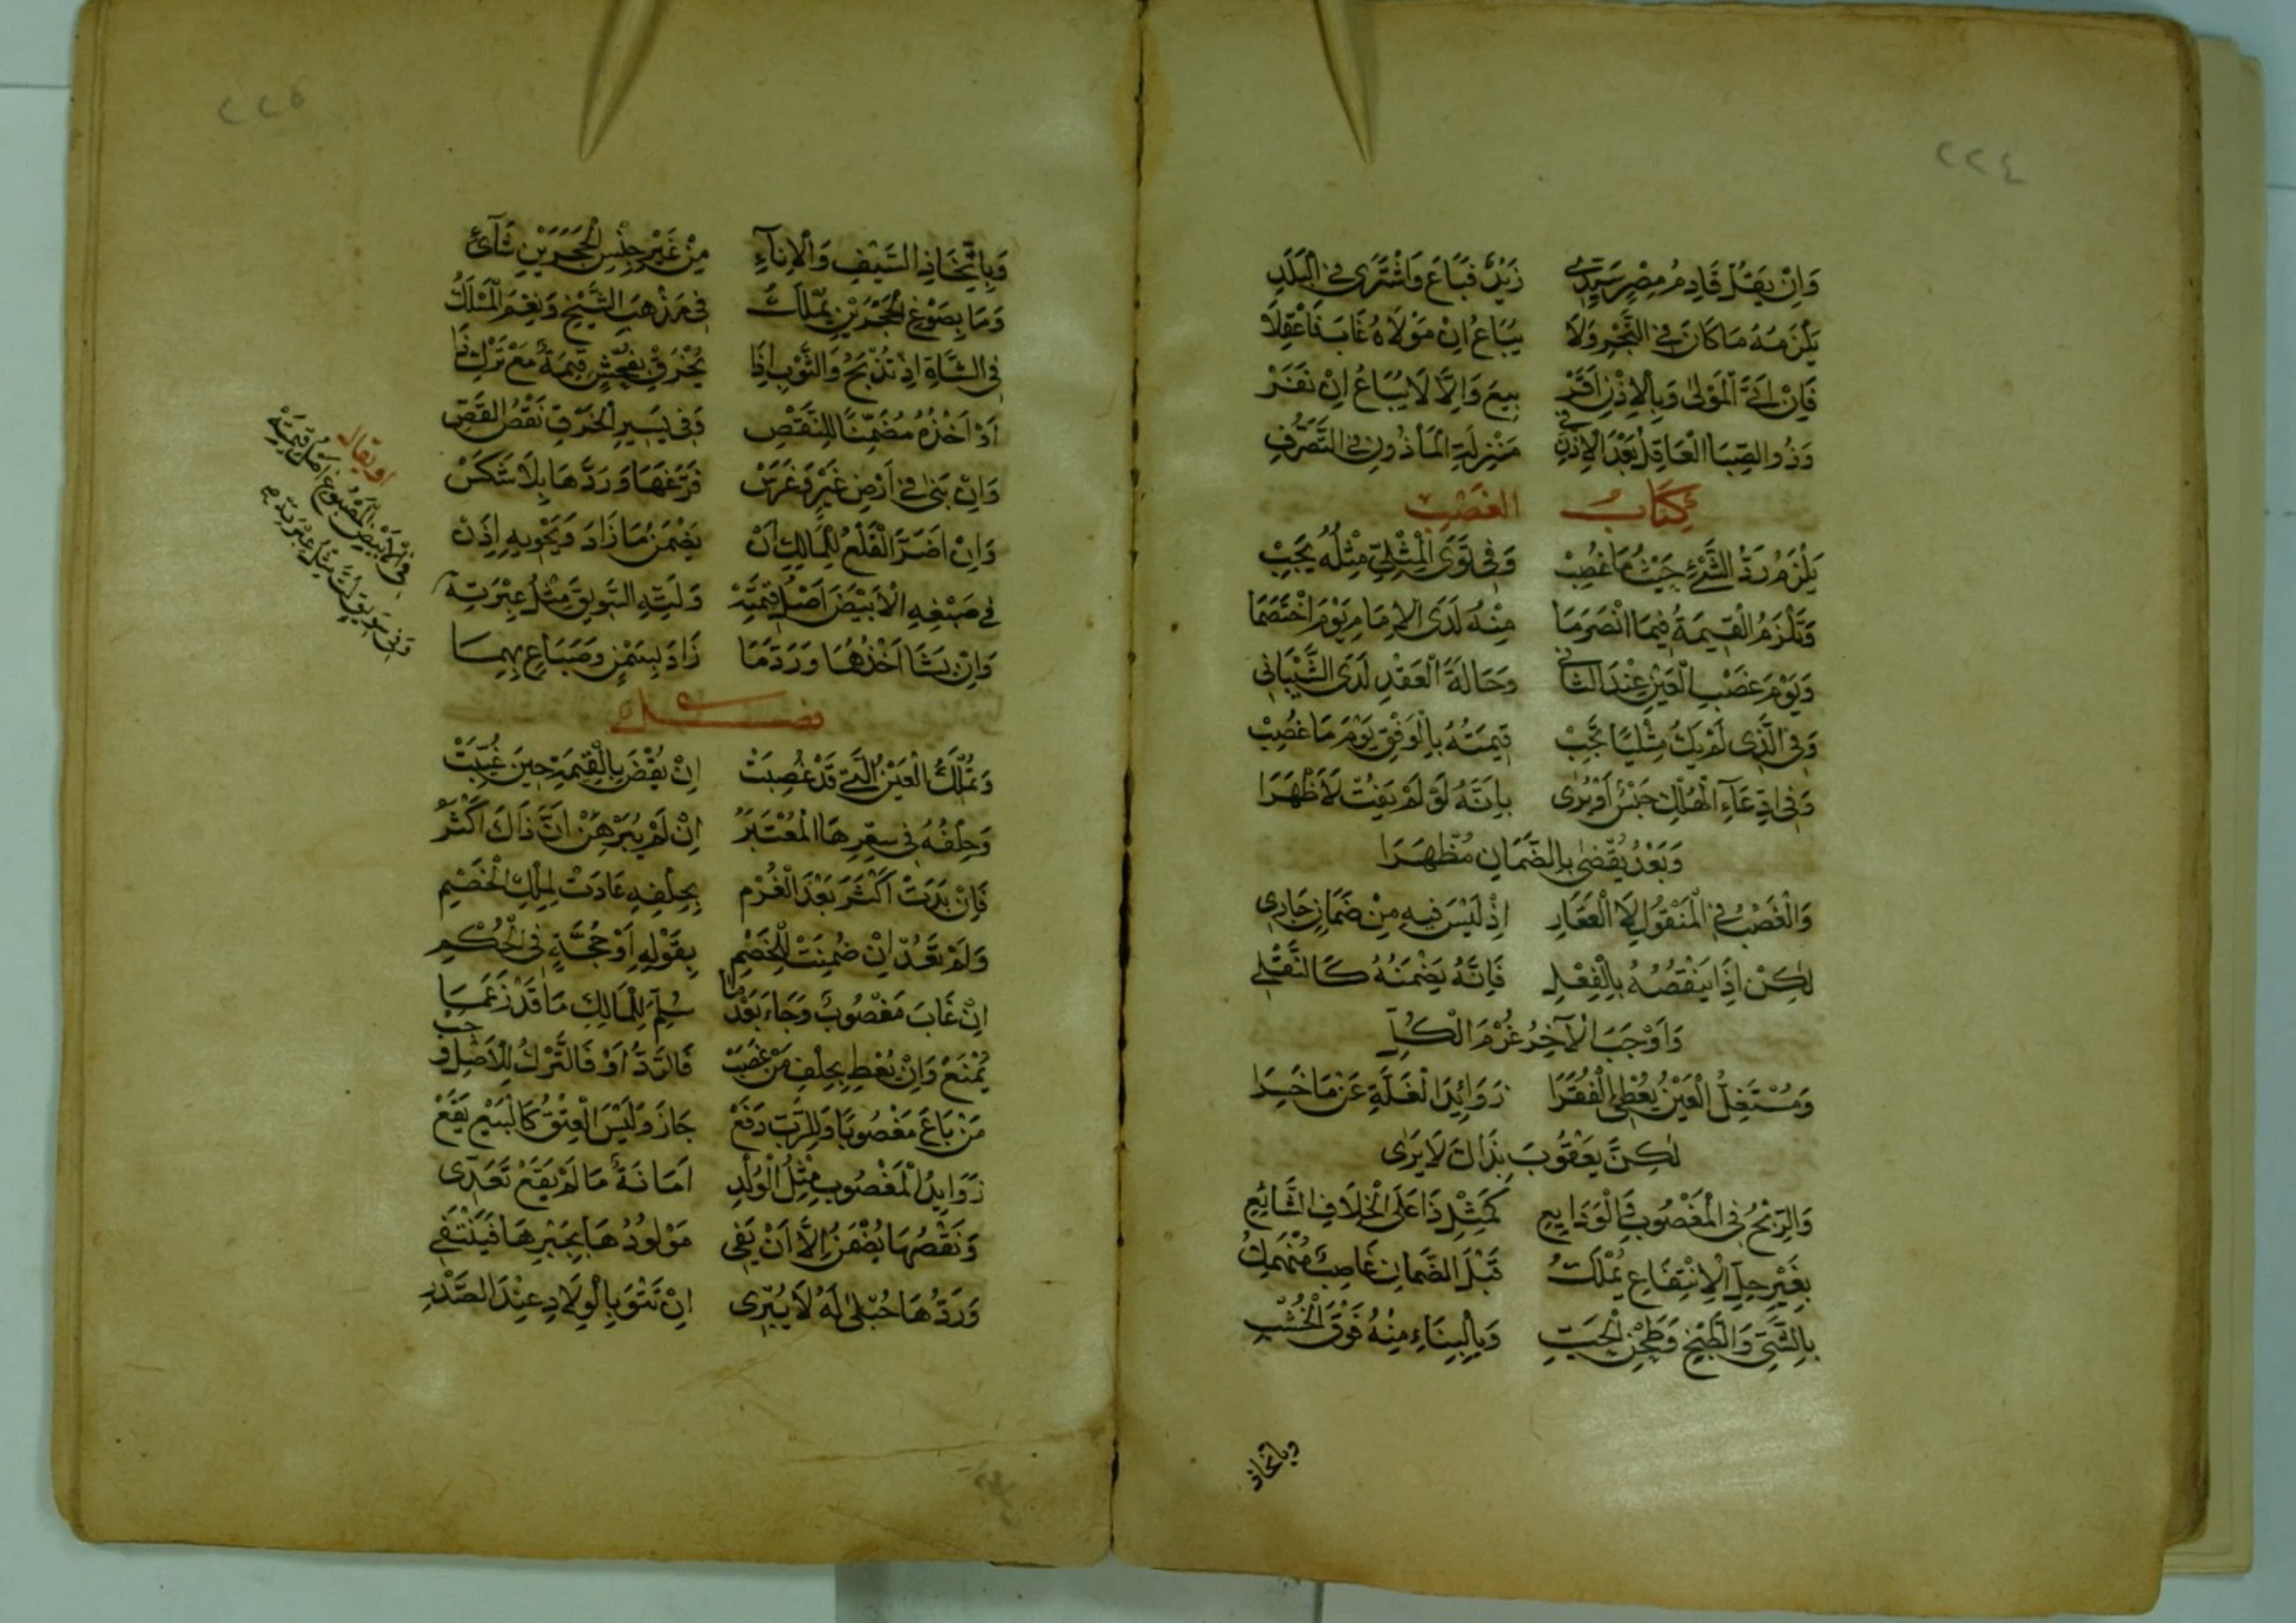 ٢٢٤
وَاِنْ يَقُلْ قَادِمُ مِصْرٍ سَيِّدِى زَيْدٌ فَبَاعَ وَاشْتَرٰى فِى الْبَلَدِ
يَلْزَمُهُ مَا كَانَ فِى التَّجْرِ وَلَا يُبَاعُ اِنْ مَوْلَاهُ غَابَ فَاعْقِلَا
فَاِنْ اَتَى الْمَوْلٰى وَبِالْاِذْنِ اَقَرْ بِيعَ وَاِلَّا لَا يُبَاعُ اِنْ نَفَرْ
وَذُو الصِّبَا الْعَاقِلُ بَعْدَ الْاِذْنِ فِى مَنْزِلَةِ الْمَأْذُونِ فِى التَّصَرُّفِ
كِتَابُ الغَصْبِ
يَلْزَمُ رَدُّ الشَّىْءِ حَيْثُ مَا غُصِبْ وَفِى تَوَى الْمِثْلِىِّ مِثْلُهُ يَجِبْ
وَتَلْزَمُ الْقِيمَةُ فِيمَا انْصَرَمَا مِنْهُ لَدَى الْاِمَامِ يَوْمَ اخْتَصَمَا
وَيَوْمَ غَصْبِ الْعَيْنِ عِنْدَ الثَّانِى وَحَالَةَ الْفَقْدِ لَدَى الشَّيْبَانِى
وَفِى الَّذِى لَمْ يَكُ مِثْلِيًّا تَجِبْ قِيمَتُهُ بِالْوَفْقِ يَوْمَ مَا غُصِبْ
وَفِى ادِّعَاءِ الْهُلْكِ حَبْسٌ اَوْ يُرٰى بِاَنَّهُ لَوْ لَمْ يَفُتْ لَاَظْهَرَا
وَبَعْدُ يُقْضٰى بِالضَّمَانِ مُظْهَرَا
وَالْغَصْبُ فِى الْمَنْقُولِ لَا الْعَقَارِ اِذْ لَيْسَ فِيهِ مِنْ ضَمَانٍ جَارِى
لٰكِنْ اِذَا يَنْقُصُهُ بِالْفِعْلِ فَاِنَّهُ يَضْمَنُهُ كَالنَّقْلِ
وَاَوْجَبَ الْآخِرُ غُرْمَ الْكُلِّ
وَمُسْتَغِلُّ الْعَيْنِ يُعْطِى الْفُقَرَا زَوَائِدَ الْغَلَّةِ عَنْ مَا خَسِرَا
لٰكِنَّ يَعْقُوبَ بِذَاكَ لَا يَرٰى
وَالرِّبْحُ فِى الْمَغْصُوبِ وَالْوَدَايِعِ كَمِثْلِ ذَا عَلَى الْخِلَافِ الشَّائِعِ
بِغَيْرِ حِلِّ الْاِنْتِفَاعِ يُمْلَكُ قَبْلَ الضَّمَانِ غَاصِبٌ مُنْهَمِكُ
بِالشَّىِّ وَالطَّبْخِ وَطَحْنِ الْحَبِّ وَبِالْبِنَاءِ مِنْهُ فَوْقَ الْخُشْبِ
وباتخاذ
٢٢٥
وَبِاتِّخَاذِ السَّيْفِ وَالْاِنَآءِ مِنْ غَيْرِ جِنْسِ الْحَجَرَيْنِ نَآئِى
وَمَا بِصَوْغِ الْحَجَرَيْنِ يُمْلَكُ فِى مَذْهَبِ الشَّيْخِ وَنِعْمَ الْمَسْلَكُ
فِى الشَّاةِ اِذْ تُذْبَحُ وَالثَّوْبِ اِذَا يُخْرَقُ بِفُحْشٍ قِيمَةٌ مَعْ تَرْكِ ذَا
اَوْ اَخْذُهُ مُضَمِّنًا لِلنَّقْصِ وَفِى يَسِيرِ الْخَرْقِ نَقْصُ الْقَصِّ
وَاِنْ بَنٰى فِى اَرْضِ غَيْرٍ وَغَرَسْ فَرَّغَهَا وَرَدَّهَا بِلَا شَكَسْ
وَاِنْ اَضَرَّ الْقَلْعُ لِلْمَالِكِ اَنْ يَضْمَنَ مَا زَادَ وَيَحْوِيهِ اِذَنْ
فِى صَبْغِهِ الْاَبْيَضَ اَصْلُ قِيمَتِهْ وَلَتِّهِ السَّوِيقَ مِثْلُ عِبْرَتِهْ
وَاِنْ يَشَا اَخْذُهُمَا وَرَدَّ مَا زَادَ بِسَمْنٍ وَصِبَاغٍ بِهِمَا
اويقال
فى الابيض المصبوغ اصل قيمته
وفى سويق لت مثل عبرته
فصل
وَتُمْلَكُ الْعَيْنُ الَّتِى قَدْ غُصِبَتْ اِنْ يُقْضَ بِالْقِيمَةِ حِينَ غُيِّبَتْ
وَحِلْفُهُ فِى سِعْرِهَا الْمُعْتَبَرُ اِنْ لَمْ يُبَرْهَنْ اَنَّ ذَاكَ اَكْثَرُ
فَاِنْ بَدَتْ اَكْثَرَ بَعْدَ الْغُرْمِ بِحِلْفِهِ عَادَتْ لِمِلْكِ الْخَصْمِ
وَلَمْ تَعُدْ اِنْ ضُمِنَتْ لِلْخَصْمِ بِقَوْلِهِ اَوْ حُجَّةٍ فِى الْحُكْمِ
اِنْ غَابَ مَغْصُوبٌ وَجَاءَ بَعْدَمَا سُلِّمَ لِلْمَالِكِ مَا قَدْ زَعَمَا
يُمْنَعْ وَاِنْ يُعْطِ بِحِلْفِ مَنْ غَصَبْ فَالرَّدُّ اَوْ فَالتَّرْكُ لِلْاَصْلِ وَجَبْ
مَنْ بَاعَ مَغْصُوبًا وَلِلرَّبِّ دَفَعْ جَازَ وَلَيْسَ الْعِتْقُ كَالْبَيْعِ يَقَعْ
زَوَايِدُ الْمَغْصُوبِ مِثْلُ الْوُلْدِ اَمَانَةٌ مَا لَمْ يَقَعْ تَعَدِّى
وَنَقْصُهَا يُضْمَنُ اِلَّا اَنْ يَفِى مَوْلُودُهَا بِجَبْرِهَا فَيَنْتَفِى
وَرَدُّهَا حُبْلٰى لَهُ لَا يُبْرِى اِنْ تَتْوَ بِالْوِلَادِ عِنْدَ الصَّدْرِ